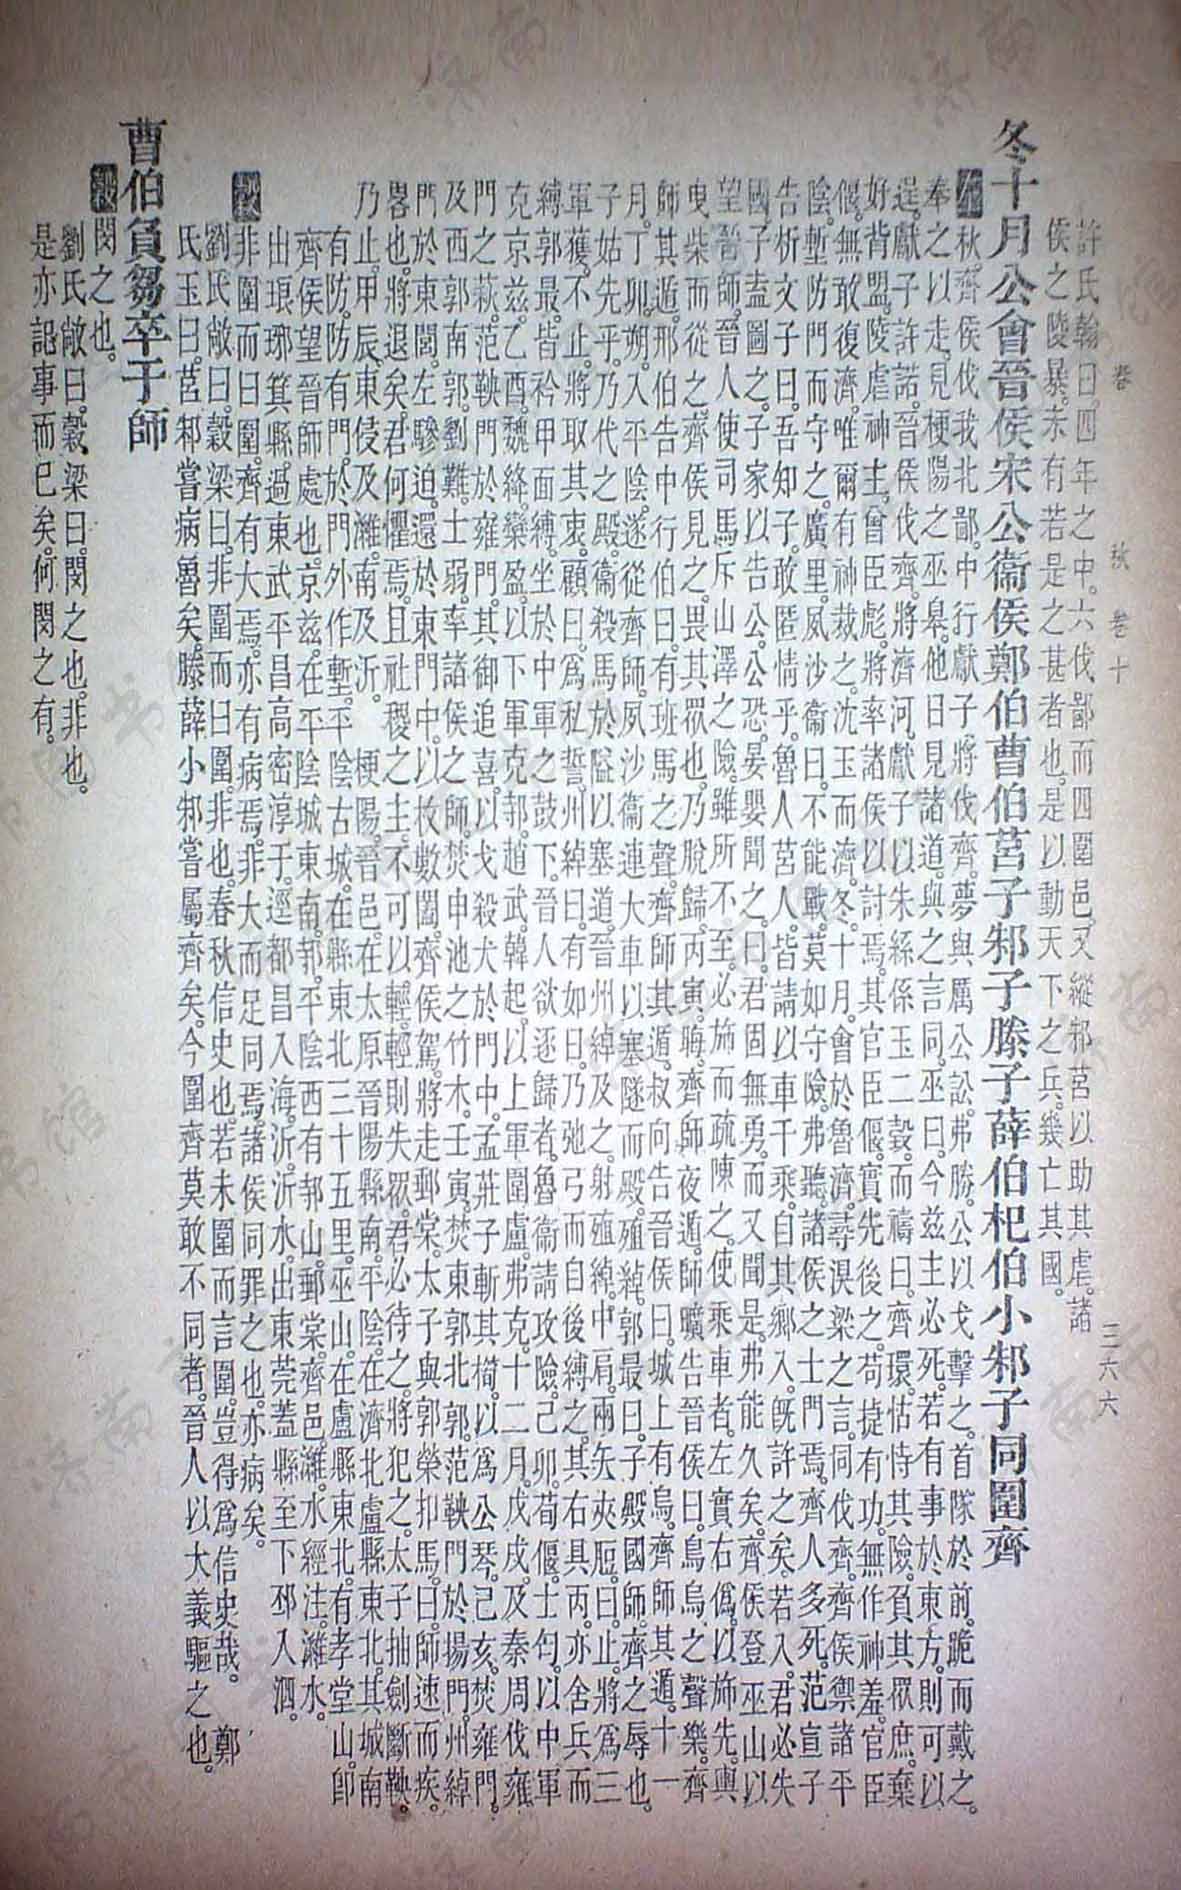 許氏翰曰。四年之中。六伐鄙而四圍邑。又縱邾莒以助其虐。諸
侯之陵暴。未有若是之甚者也。是以動天下之兵。幾亡其國。
冬十月公會晉侯宋公衞侯鄭伯曹伯莒子邾子滕子薛伯杞伯小邾子同圍齊
秋。齊侯伐我北鄙。中行獻子。將伐齊。夢與厲公訟。弗勝。公以戈擊之。首隊於前。跪而戴之。
奉之以走。見梗陽之巫皋。他日見諸道。與之言同。巫曰。今茲主必死。若有事於東方。則可以
逞。獻子許諾。晉侯伐齊。將濟河。獻子以朱絲係玉二瑴。而禱曰。齊環。怙恃其險。負其眾庶。棄
好背盟。陵虐神主。曾臣彪。將率諸侯以討焉。其官臣偃。實先後之。苟捷有功。無作神羞。官臣
偃。無敢復濟。唯爾有神裁之。沈玉而濟。冬。十月。會於魯濟。尋湨梁之言。同伐齊。齊侯禦諸平
陰。塹防門。而守之。廣里。夙沙衞曰。不能戰。莫如守險。弗聽。諸侯之士門焉。齊人多死。范宣子
告析文子曰。吾知子。敢匿情乎。魯人莒人。皆請以車千乘。自其鄉入。旣許之矣。若入。君必失
國。子盍圖之。子家以告公。公恐。晏嬰聞之。曰。君固無勇。而又聞是。弗能久矣。齊侯登巫山以
望晉師。晉人使司馬斥山澤之險。雖所不至。必旆而疏陳之。使乘車者。左實右僞。以旆先。輿
曳柴而從之。齊侯見之。畏其眾也。乃脫歸。丙寅。晦。齊師夜遁。師曠告晉侯曰。鳥烏之聲樂。齊
師其遁。邢伯告中行伯曰。有班馬之聲。齊師其遁。叔向告晉侯曰。城上有烏。齊師其遁。十一
月。丁卯。朔。入平陰。遂從齊師。夙沙衞連大車以塞隧而殿。殖綽。郭最曰。子殿國師。齊之辱也。
子姑先乎。乃代之殿。衞殺馬於隘以塞道。晉州綽及之。射殖綽。中肩。兩矢夾脰。曰。止。將爲三
軍獲。不止。將取其衷。顧曰。爲私誓。州綽曰。有如日。乃弛弓而自後縛之。其右具丙。亦舍兵而
縛郭最。皆衿甲面縛。坐於中軍之鼓下。晉人欲逐歸者。魯衞請攻險。己卯。荀偃。士匄。以中軍
克京茲。乙酉。魏絳。欒盈。以下軍克邿。趙武。韓起。以上軍圍盧。弗克。十二月。戊戌。及秦周伐雍
門之萩。范鞅門於雍門。其御追喜。以戈殺犬於門中。孟莊子斬其橁。以爲公琴。己亥。焚雍門。
及西郭南郭。劉難。士弱。率諸侯之師。焚申池之竹木。壬寅。焚東郭北郭。范鞅門於揚門。州綽
門於東閭。左驂迫。還於東門中。以枚數闔。齊侯駕。將走郵棠。太子與郭榮扣馬曰。師速而疾。
畧也。將退矣。君何懼焉。且社稷之主。不可以輕。輕則失眾。君必待之。將犯之。太子抽劍斷鞅。
乃止。甲辰。東侵及濰。南及沂。　梗陽。晉邑。在太原晉陽縣南。平陰。在濟北盧縣東北。其城南
有防。防有門。於門外作塹。平陰古城。在縣東北三十五里。巫山。在盧縣東北。有孝堂山。卽
齊侯望晉師處也。京茲。在平陰城東南。邿。平陰西有邿山。郵棠。齊邑。濰。水經注。濰水。
出琅琊箕縣。過東武平昌高密淳于。逕都昌入海。沂。沂水。出東莞蓋縣至下邳入泗。
非圍而曰圍。齊有大焉。亦有病焉。非大而足同焉。諸侯同罪之也。亦病矣。
劉氏敞曰。穀梁曰。非圍而曰圍。非也。春秋信史也。若未圍而言圍。豈得爲信史哉。　鄭
氏玉曰。莒邾嘗病魯矣。滕薛小邾嘗屬齊矣。今圍齊莫敢不同者。晉人以大義驅之也。
曹伯負芻卒于師
閔之也。
劉氏敞曰。穀梁曰。閔之也。非也。
是亦記事而已矣。何閔之有。
卷　秋　卷十　三六六